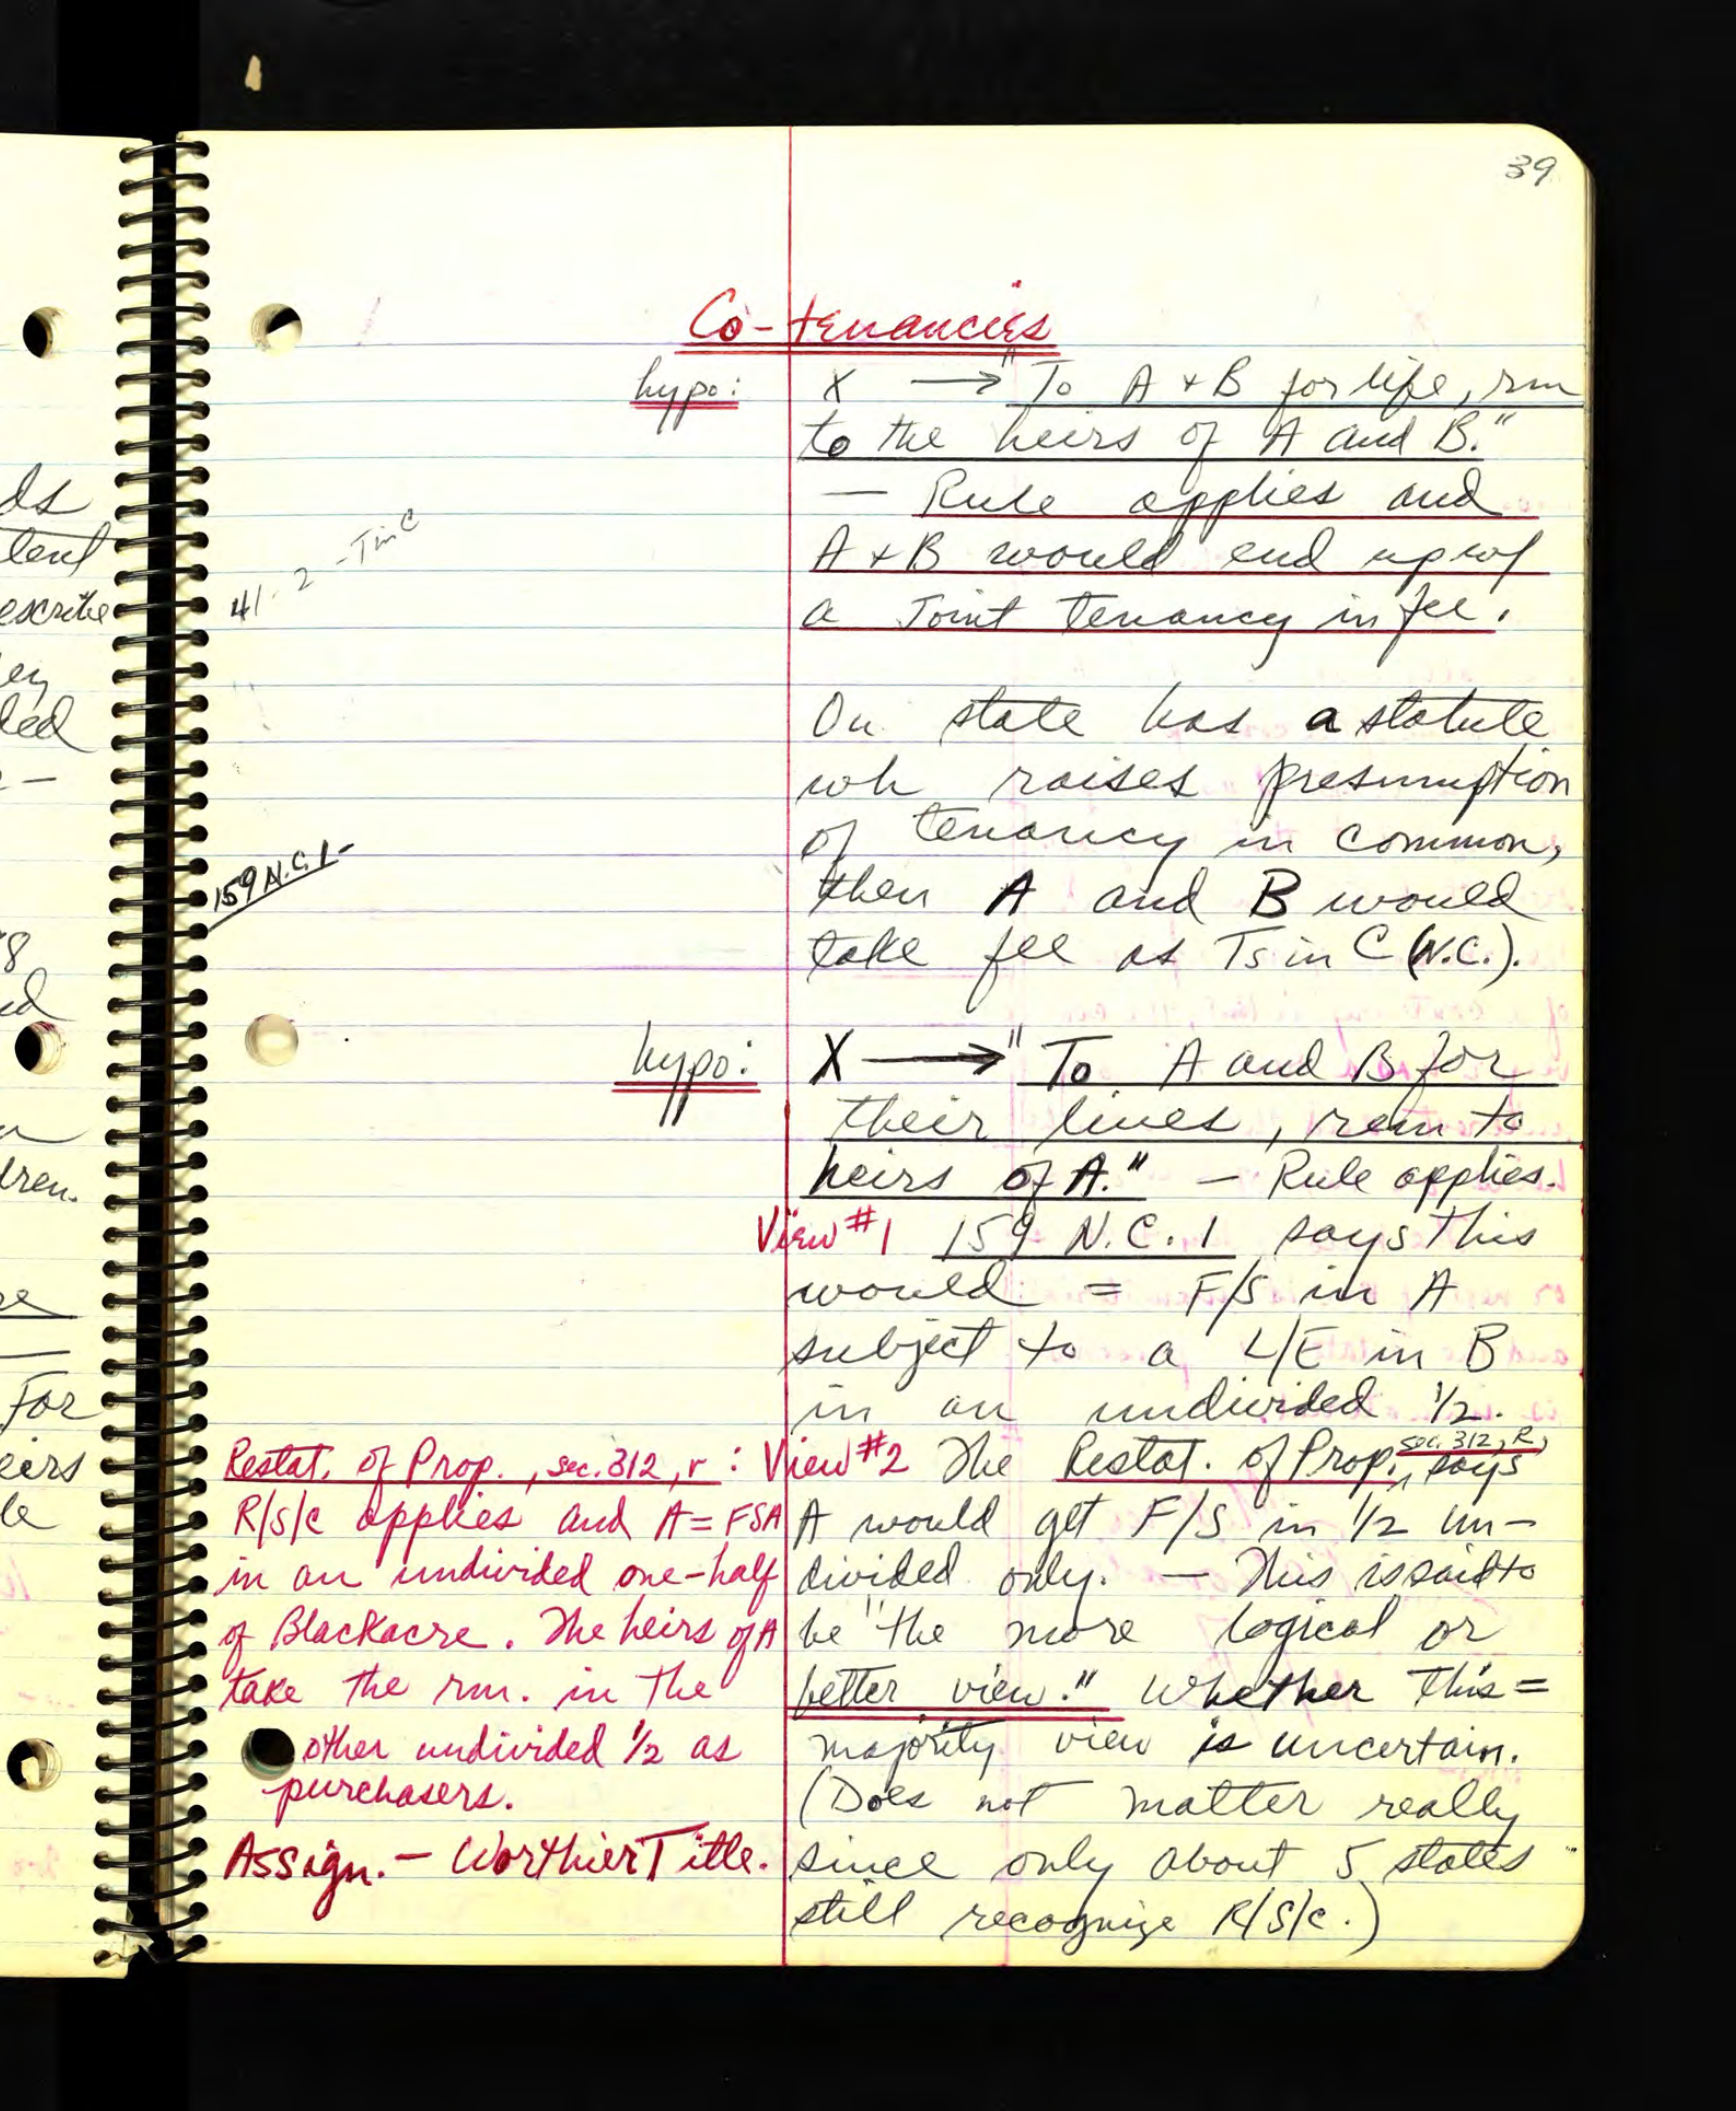 39
Co-tenancies
hypo: X → "To A + B for life, rm
to the heirs of A and B."
— Rule applies and
A + B would end up w/
a Joint tenancy in fee.
41-2-TinC
On state has a statute
wh raises presumption
of tenancy in common,
then A and B would
take fee as Ts in C (N.C.).
159 N.C. 1-
hypo: X → "To A and B for
their lives, rem to
heirs of A." — Rule applies.
View #1 159 N.C. 1 says this
would = F/S in A
subject to a L/E in B
in an undivided 1/2.
View #2 The Restat. of Prop., sec. 312, R, says
A would get F/S in 1/2 un-
divided only. — This is said to
be "the more logical or
better view." Whether this =
majority view is uncertain.
(Does not matter really
since only about 5 states
still recognize R/S/c.)
Restat. of Prop., sec. 312, r :
R/S/c applies and A = FSA
in an undivided one-half
of Blackacre. The heirs of A
take the rm. in the
other undivided 1/2 as
purchasers.
Assign. — Worthier Title.
ds
tent
escribe
ey
ded
8
dren.
For
eirs
le